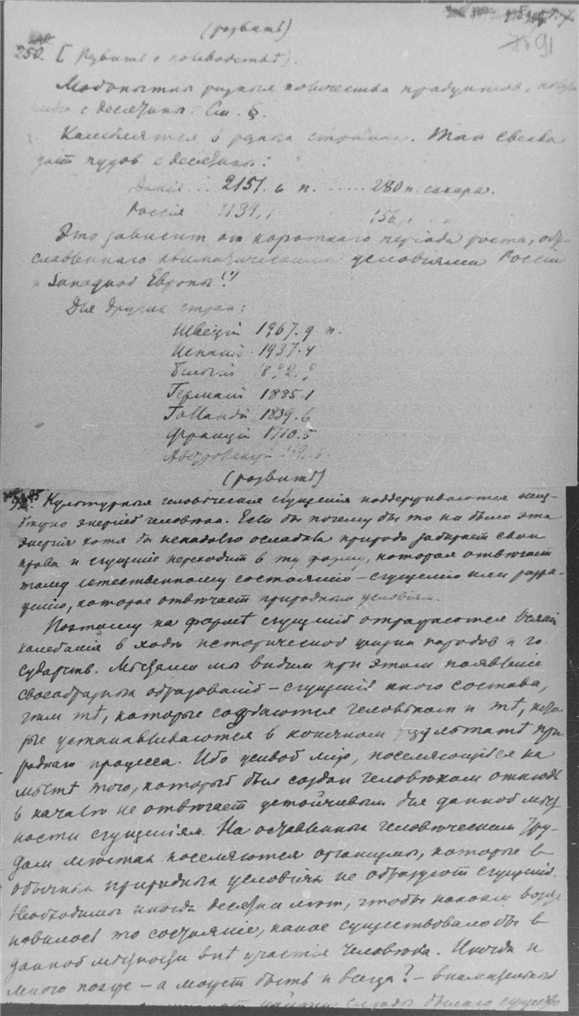 (развить)
91
250. [Развить о полеводстве].
Любопытны разныя количества продуктов,
с десятины. См.
Колеблются в разных странах. Так свекла
дает пудов с десятины:
Дания ... 2151.6 п. ..... 280 п. сахара.
Россия 1134,1
Это зависит от короткаго периода роста, обу-
словленнаго климатическими условиями России
и Западной Европы
Для других стран:
Швеций 1967.9 п.
Испаний 1937.4
Бельгий
Германий 1885.1
Голландий 1839.6
Франций 1710.5
(развить)
Культурныя человѣческия сгущения поддерживаются
энергией человѣка. Если бы почему бы то ни было эта
энергия хотя бы ненадолго ослабла природа забирает свои
права и сгущение переходит в ту форму, которая отвѣчает
тому естественному состоянию – сгущению или разрѣ-
жению, которое отвѣчает природным условиям.
Поэтому на формѣ сгущений отражаются всякия
колебания в ходѣ исторической жизни народов и го-
сударств. Мѣстами мы видим при этом появление
своеобразных образований – сгущений иного состава,
чѣм тѣ, которые создаются человѣком и тѣ, кото-
рые устанавливаются в конечном результатѣ при-
роднаго процесса. Ибо живой мір, поселяющийся на
мѣстѣ того, который был создан человѣком отнюдь
в началѣ не отвѣчает устойчивым для данной мѣст-
ности сгущениям. На оставленных человѣческим тру-
дом мѣстах поселяются организмы, которые в
обычных природных условиях не образуют сгущений.
Необходимы иногда десятки лѣт, чтобы наконец возста-
новилось то состояние, какое существовало бы в
данной мѣстности внѣ участия человѣка. Иногда и
много позже – а может быть и всегда? – внимательный
слѣды былого